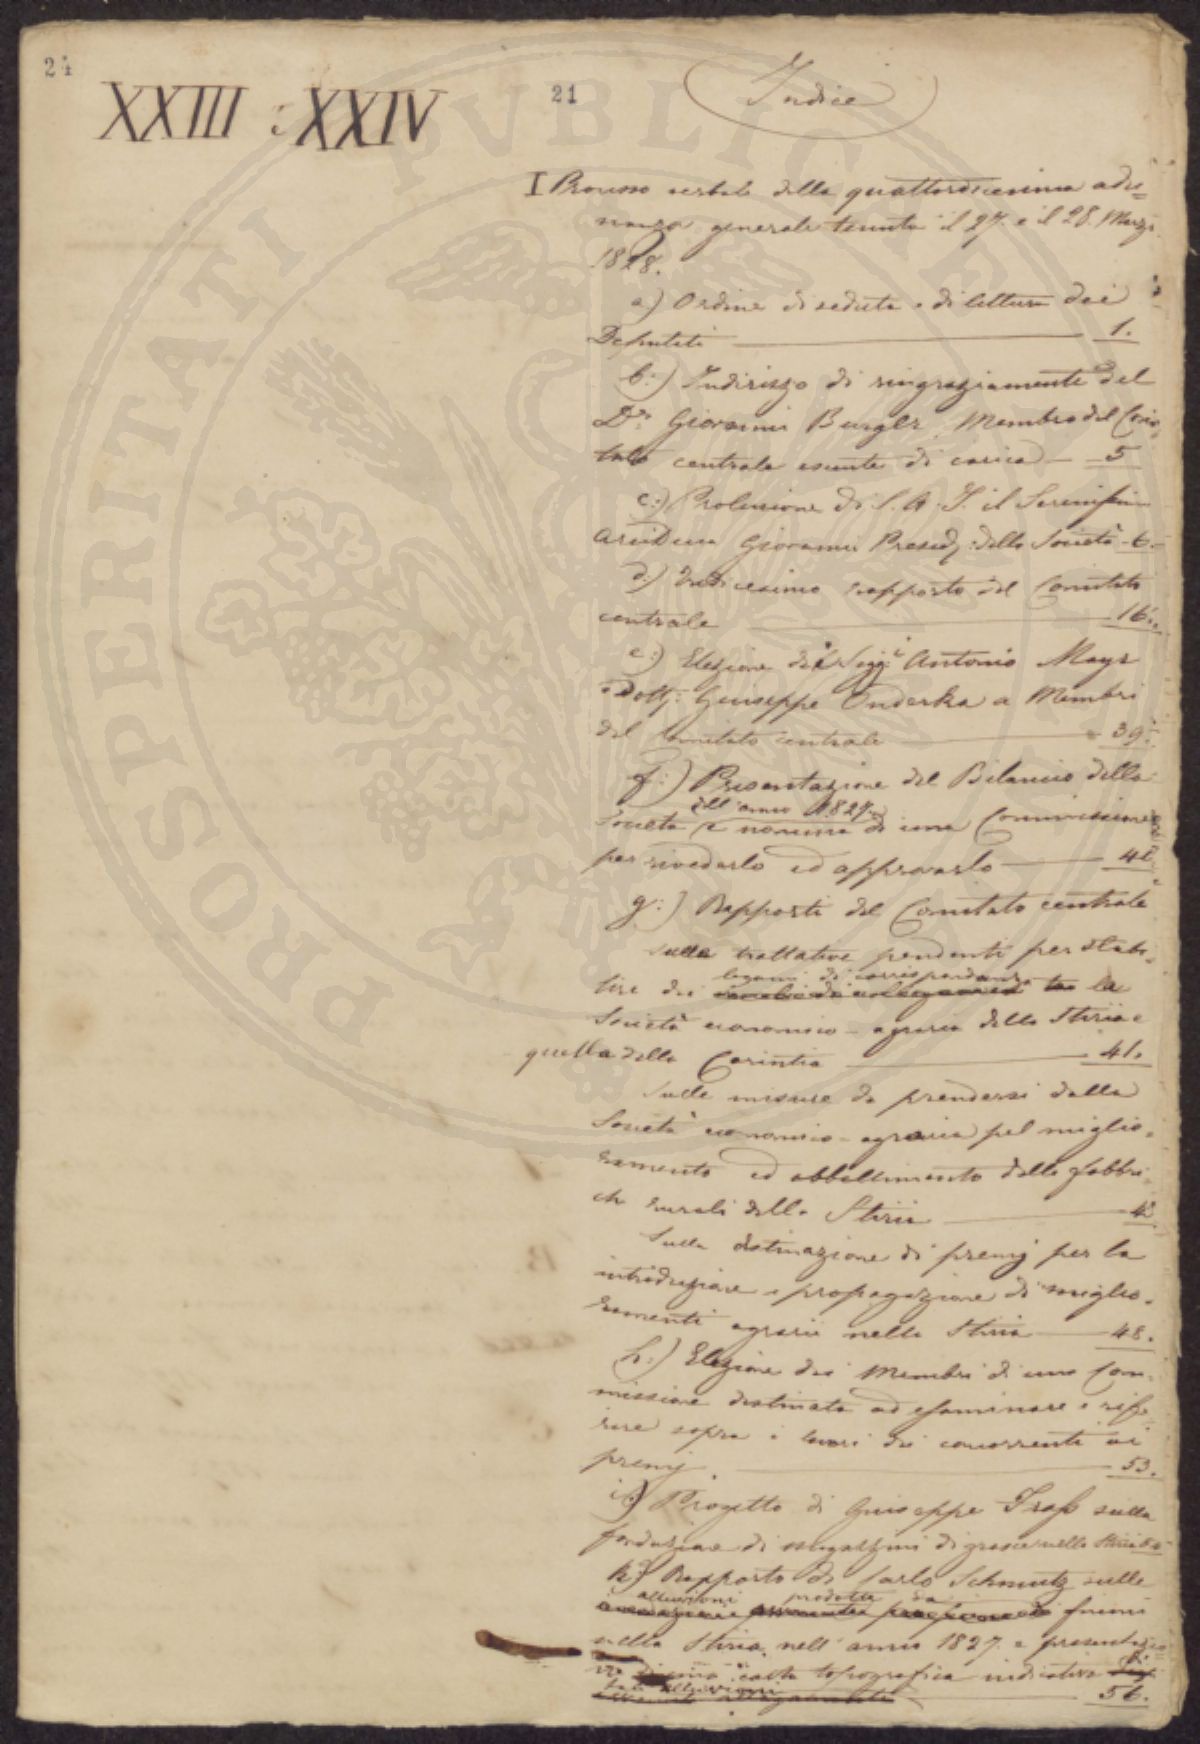 24
XXIII e XXIV
21
Indice
I Processo verbale della quattordicesima adu=
nanza generale tenuta il 27. e il 28. Marzo
1828.
a.) Ordine di seduta e di lettura dei
Deputati 1.
b.) Indirizzo di ringraziamento del
Dr. Giovanni Burger, Membro del Comi=
tato centrale esunte di carica 5
c.) Prolusione di S. A. I. il Serenissimo
Arciduca Giovanni Presid: della Società 6.
d.) Undicesimo rapporto del Comitato
centrale 16.
e.) Elezione dei Sigg:i Antonio Mayr
e Dott: Giuseppe Onderka a Membri
del Comitato centrale 39.
f.) Presentazione del Bilancio della
dell'anno 1827.
Società e nomina di una Commissione
per rivederlo ed approvarlo
g.) Rapporti del Comitato centrale
sulle trattative pendenti per stabi=
legami di corrispondenza
lire dei tra la
Società economico-agraria della Stiria e
quella della Carintia 41.
Sulle misure da prendersi dalla
Società economico-agraria pel miglio=
ramento ed abbellimento delle fabbri=
che rurali della Stiria
Sulla destinazione di premj per la
introduzione e propagazione di miglio=
ramenti agrarii nella Stiria 48.
h.) Elezione dei Membri di una Com=
missione destinata ad esaminare e rife=
rire sopra i lavori dei concorrenti ai
premj 53.
i.) Progetto di Giuseppe sulla
fondazione di magazzini di grasce nella Stiria
k.) Rapporto di Carlo Schmutz sulle
alluvioni prodotte da
fiumi
nella Stiria nell'anno 1827. e presentazio=
ne di una carta topografica indicativa
tali alluvioni
56.
PROSPERITATI PUBLICAE